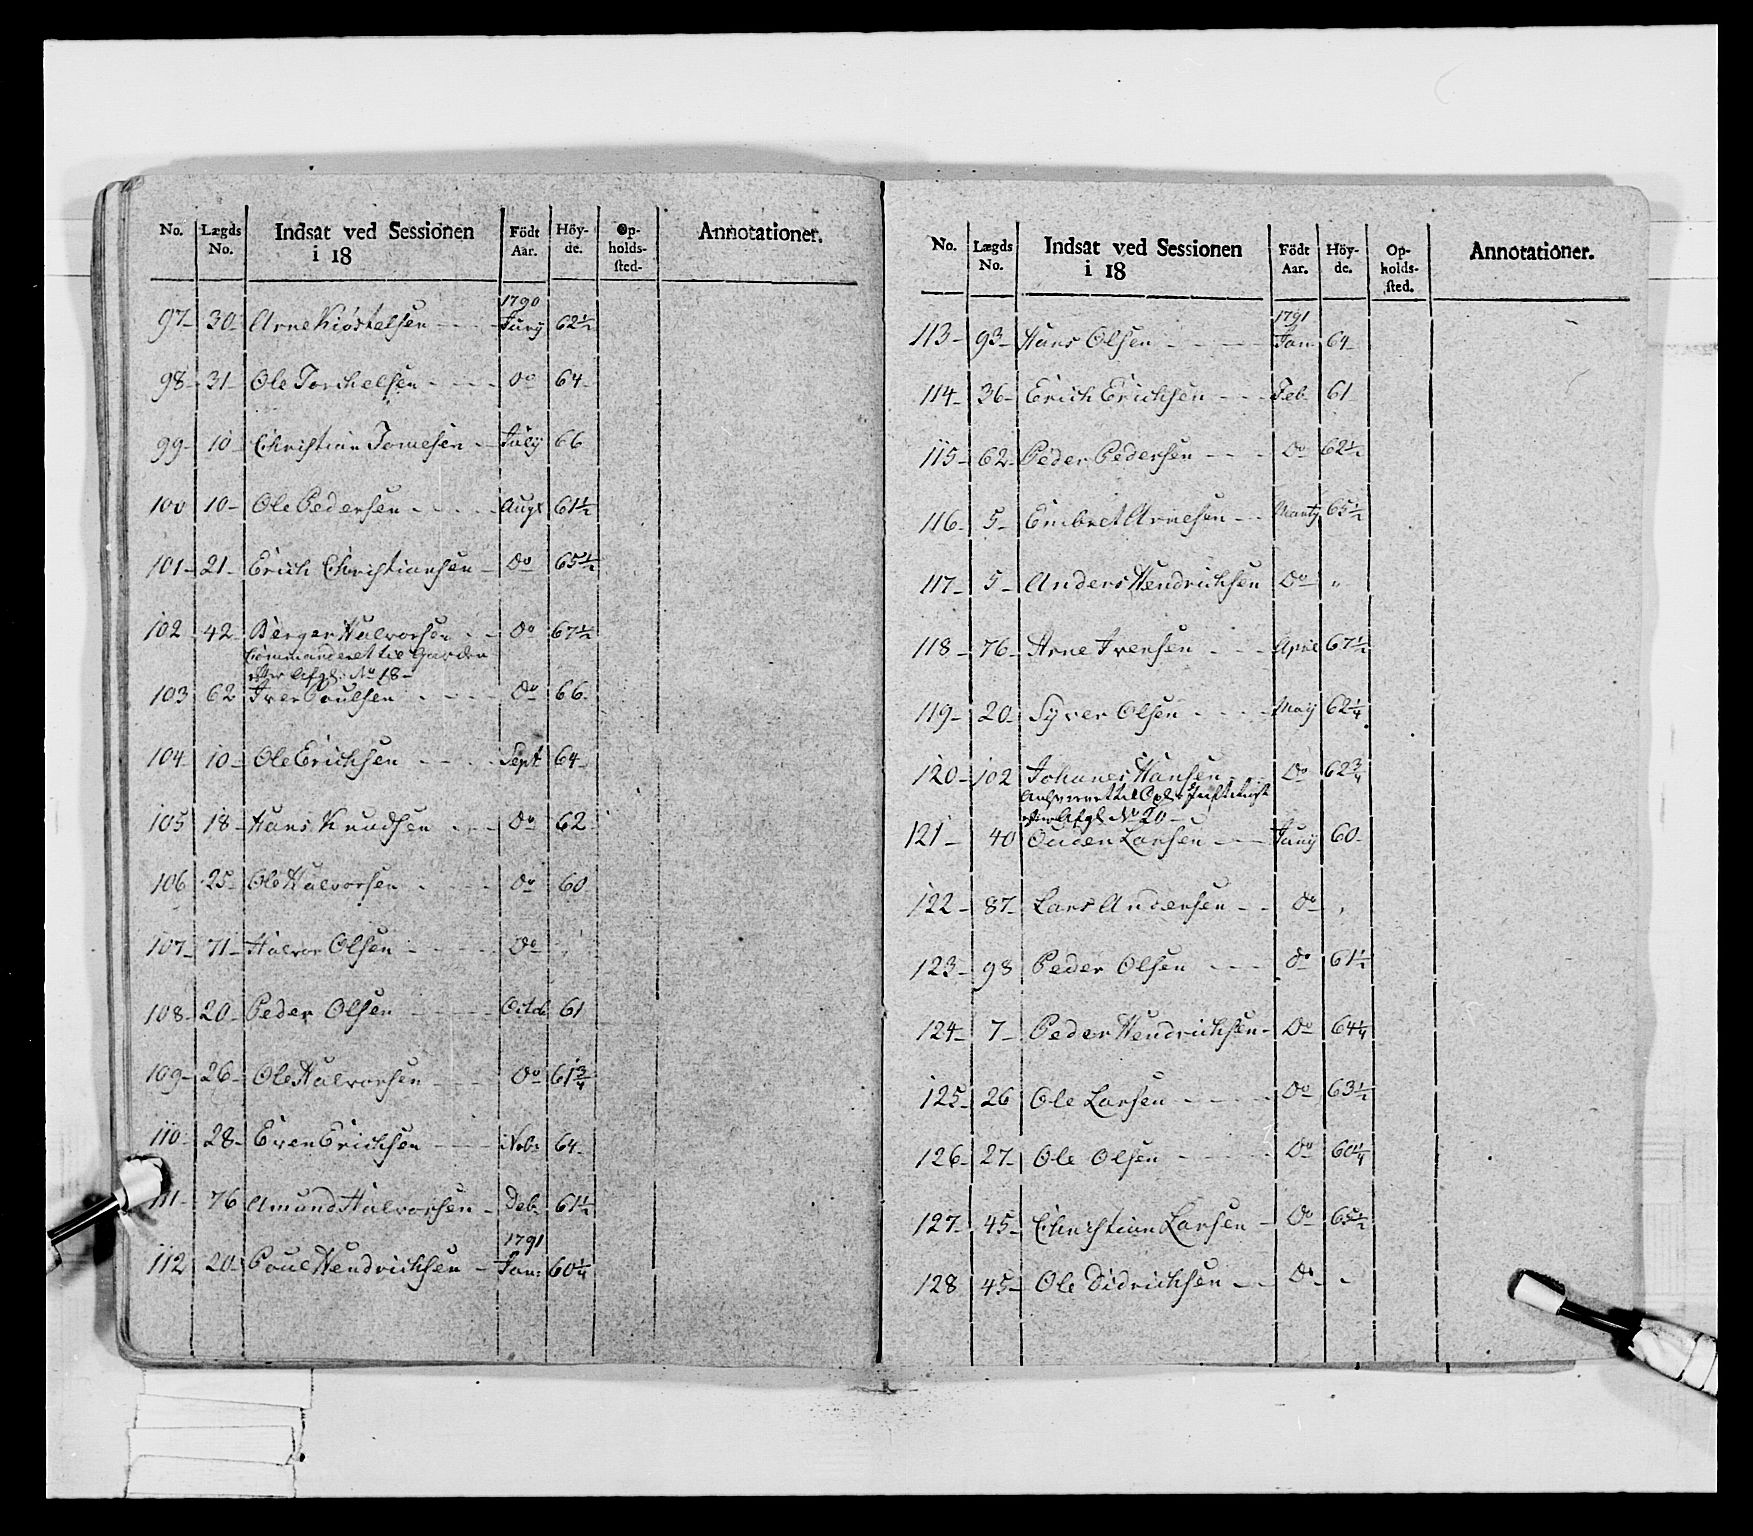 No. Lægds No. Indsat ved Sessionen i 18 Födt Aar. Höyde. Opholdssted. Annotationer.
1790
97 30 Arne Kiøstelsen Juny 62 1/2
98 31 Ole Torchelsen Do 64
99 10 Christian Tomesen July 66
100 10 Ole Pedersen Augt 61 1/2
101 21 Erich Christiansen Do 65 1/2
102 42 Berger Halvorsen Do 67 1/2
Commanderet til Garden
Afgl: No 18
103 62 Iver Poulsen Do 66
104 10 Ole Erichsen Sept 64
105 18 Hans Knudsen Do 62
106 25 Ole Halvorsen Do 60
107 71 Halvor Olsen Do
108 20 Peder Olsen Octob 61
109 26 Ole Halvorsen Do 61 3/4
110 28 Even Erichsen Nobr 64
111 76 Amund Halvorsen Deb. 61 1/2
1791
112 20 Poul Hendrichsen Jan: 60 1/4
No. Lægds No. Indsat ved Sessionen i 18 Födt Aar. Höyde. Opholdssted. Annotationer.
1791
113 93 Hans Olsen Jan 64
114 36 Erich Erichsen Feb 61
115 62 Peder Pedersen Do 62 1/2
116 5 Embret Arnesen Marty 65 1/2
117 5 Anders Hendrichsen Do "
118 76 Arne Iversen April 67 1/2
119 20 Syver Olsen May 62 1/4
120 102 Johanes Hansen Do 62 3/4
til
Afgl No 20
121 40 Ouden Larsen Juny 60
122 87 Lars Andersen Do "
123 98 Peder Olsen Do 61 1/2
124 7 Peder Hendrichsen Do 64 1/4
125 26 Ole Larsen Do 63 1/2
126 27 Ole Olsen Do 60 1/4
127 45 Christian Larsen Do 65 1/2
128 45 Ole Didrichsen Do -